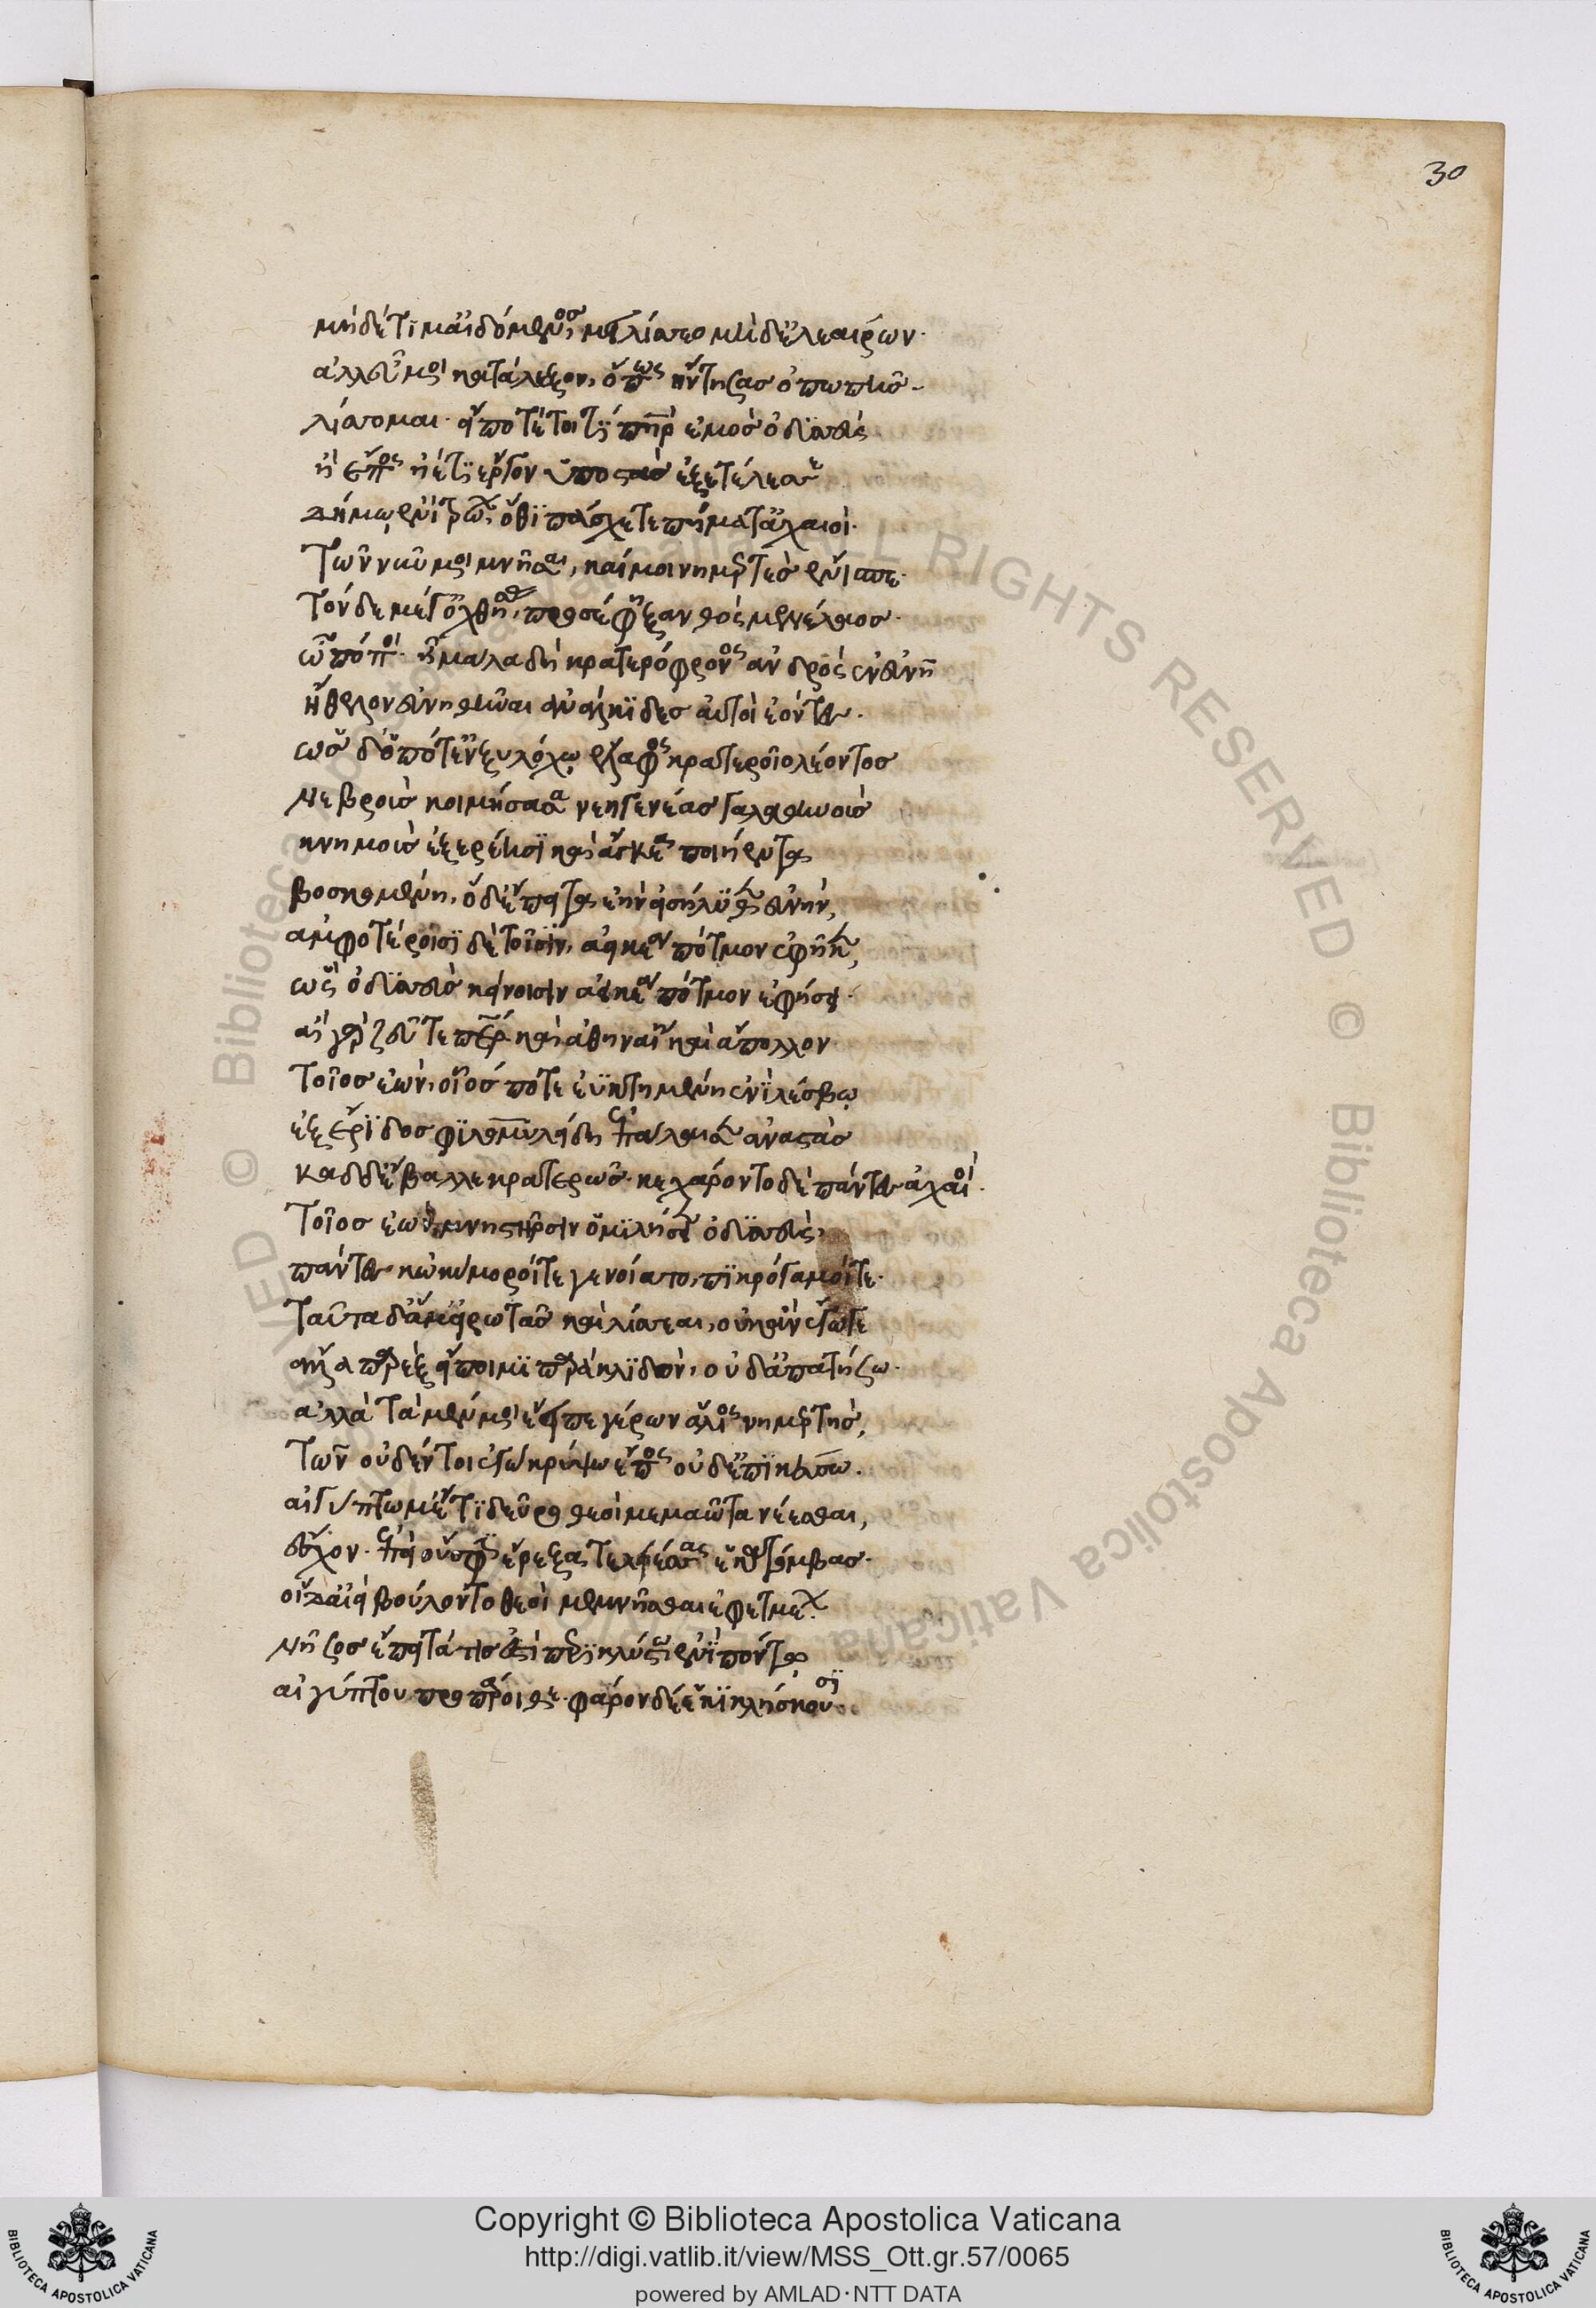 30
μηδέ τί μ' αἰδόμενος μειλίσσεο μὴ δ' ἐλεαίρων.
ἀλλ' εὖ μοι κατάλεξον, ὅπως ἤντησας ὀπωπῆς.
λίσσομαι. εἴποτέ τοί τι πατὴρ ἐμὸς ὀδυσσεὺς
ἢ ἔπος ἠέ τι ἔργον ὑποστὰς ἐξετέλεσσε
δήμῳ ἐνὶ τρώων ὅθι πάσχετε πήματ' ἀχαιοί.
τῶν νῦν μοι μνῆσαι, καί μοι νημερτὲς ἔνισπε.
τὸν δὲ μέγ' ὀχθήσας προσέφη ξανθὸς μενέλαος.
ὢ πόποι. ἦ μάλα δὴ κρατερόφρονος ἀνδρὸς ἐν εὐνῇ
ἤθελον εὐνηθῆναι ἀνάλκιδες αὐτοὶ ἐόντες.
ὡς δ' ὁπότ' ἐν ξυλόχῳ ἔλαφος κρατεροῖο λέοντος
νεβροὺς κοιμήσασα νεηγενέας γαλαθηνοὺς
κνημοὺς ἐξερέῃσι καὶ ἄγκεα ποιήεντα
βοσκομένη, ὁ δ' ἔπειτα ἑὴν εἰσήλυθεν εὐνήν,
ἀμφοτέροισι δὲ τοῖσιν, ἀεικέα πότμον ἐφῆκεν,
ὣς ὀδυσσεὺς κείνοισιν ἀεικέα πότμον ἐφήσει.
αἲ γὰρ ζεῦ τε πάτερ καὶ ἀθηναίη καὶ ἄπολλον
τοῖος ἐὼν, οἷός ποτε ἐϋκτιμένῃ ἐνὶ λέσβῳ
ἐξ ἔριδος φιλομηλείδῃ ἐπάλαισεν ἀναστὰς
καδδ' ἔβαλλε κρατερῶς. κεχάροντο δὲ πάντες ἀχαιοί.
τοῖος ἐὼν μνηστῆρσιν ὁμιλήσειεν ὀδυσσεὺς,
πάντες κ' ὠκύμοροί τε γενοίατο, πικρόγαμοί τε.
ταῦτα δ' ἅ μ' εἰρωτᾷς καὶ λίσσεαι, οὐκ ἂν ἔγωγε
ἄλλα παρὲξ εἴποιμι παρακλιδὸν, οὐδ' ἀπατήσω.
ἀλλὰ τὰ μέν μοι ἔειπε γέρων ἅλιος νημερτὴς,
τῶν οὐδέν τοι ἐγὼ κρύψω ἔπος οὐδ' ἐπικεύσω.
αἰγύπτω μ' ἔτι δεῦρο θεοὶ μεμαῶτα νέεσθαι,
ἔσχον. ἐπεὶ οὔ σφι ἔρεξα τεληέσσας ἑκατόμβας.
οἱ δ' αἰεὶ βούλοντο θεοὶ μεμνῆσθαι ἐφετμέων.
νῆσος ἔπειτά τις ἐστὶ πολυκλύστῳ ἐνὶ πόντῳ
αἰγύπτου προπάροιθε. φάρον δέ ἑ κικλήσκουσι.